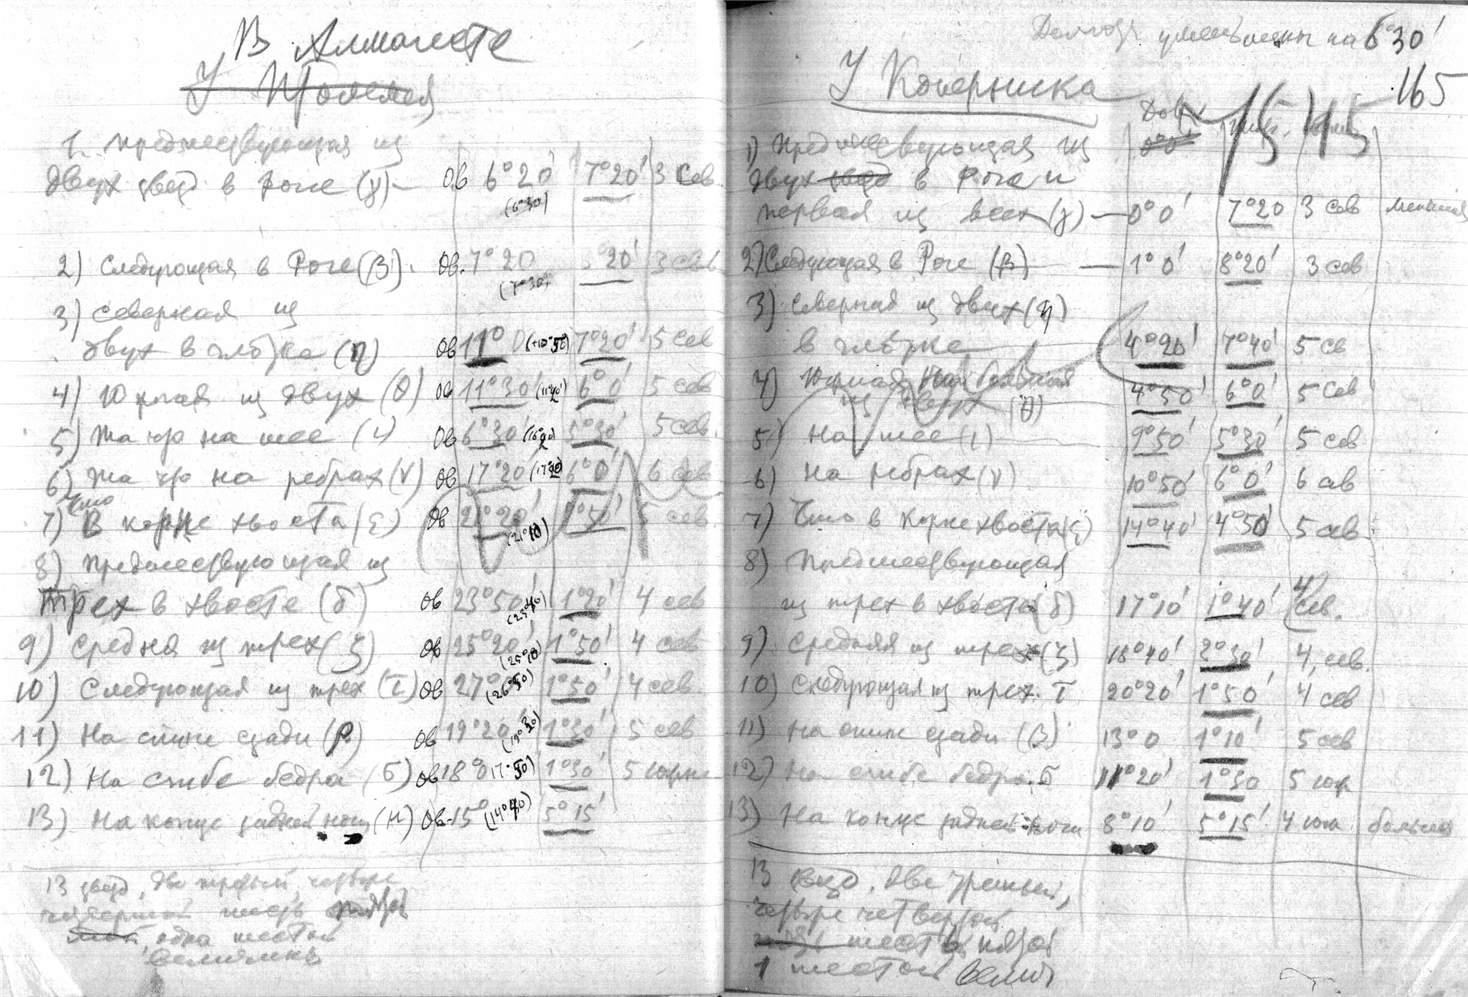 В Алмагесте
У Птолемея
1. Предшествующая из
двух звезд в Роге (γ) — Ов 6°20' 7°20' 3 сев
(6°30)
2) Следующая в Роге (β). Ов. 7°20 8°20' 3 сев
(7°30)
3) Северная из
двух в глотке (η) Ов 11° 0 (+10°50) 7°20' 5 сев
4) Южная из двух (θ) Ов 11°30' 6°0' 5 сев
5) Та что на шее (ι) Ов 6°30 5°30' 5 сев.
6) Та что на ребрах (ν) Ов 17°20 6°0' 6 сев
7) Что в корне хвоста (ε) Ов 21°20' 4°50' 5 сев.
8) Предшествующая из
трех в хвосте (δ) Ов 23°50' 1°20' 4 сев
9) Средняя из трех (ζ) Ов 25°20' 1°50' 4 сев
10) Следующая из трех (τ) Ов 27° (26°50) 1°50' 4 сев.
11) На спине сзади (ρ) Ов 19°20' (19°30) 1°30' 5 сев
12) На сгибе бедра (σ) Ов 18°0 (17°50) 1°30' 5 южн
13) На конце задней ноги (κ) Ов 15° (14°40) 5°15'
13 звезд, две третьей, четыре
четвертой шесть пятой
одна шестой
величины
Долгота уменьшены на 6°30'
165
У Коперника
Долг 15 45
1) Предшествующая из
двух звезд в Роге и
первая из всех (γ) — 0°0' 7°20 3 сев меньшая
2) Следующая в Роге (β) — 1°0' 8°20' 3 сев
3) Северная из двух (η)
в глотке 4°20' 7°40' 5 се
4) Южная
из двух (θ) 4°50' 6°0' 5 сев
5) На шее (ι) 9°50' 5°30' 5 сев
6) На ребрах (ν) 10°50' 6°0' 6 сев
7) Что в корне хвоста (ε) 14°40' 4°50' 5 сев.
8) Предшествующая
из трех в хвосте (δ) 17°10' 1°40' 4 сев.
9) Средняя из трех (ζ) 18°40' 2°30' 4 сев.
10) Следующая из трех. τ 20°20' 1°50' 4 сев
11) На спине сзади (ρ) 13°0 1°10' 5 сев
12) На сгибе бедра. σ 11°20' 1°30 5 юж
13) На конце задней ноги 8°10' 5°15' 4 юж больше
13 звезд, две третьей,
четыре четвертой
шесть пятой
1 шестой велич